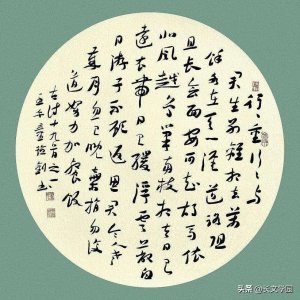 行〻重行〻与
君生别离相去万
余里各在天一涯道路阻
且长会面安可知胡马依
北风越鸟巢南枝相去日已
远衣带日已缓浮云蔽白
日游子不顾返思君令人老
岁月忽已晚弃捐勿复
道努力加餐饭
古诗十九首之一
头条 @长文学园